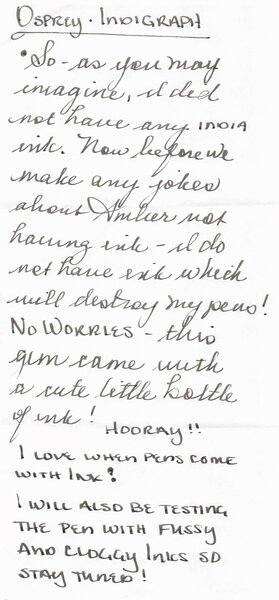 Osprey · Indigraph
• So - as you may
imagine, I did
not have any INDIA
ink. Now before we
make any jokes
about Amber not
having ink - I do
not have ink which
will destroy my pens!
No Worries - this
gem came with
a cute little bottle
of ink!
HOORAY!!
I LOVE WHEN PENS COME
WITH INK!
I WILL ALSO BE TESTING
THE PEN WITH FUSSY
AND CLOGGY INKS SO
STAY TUNED!